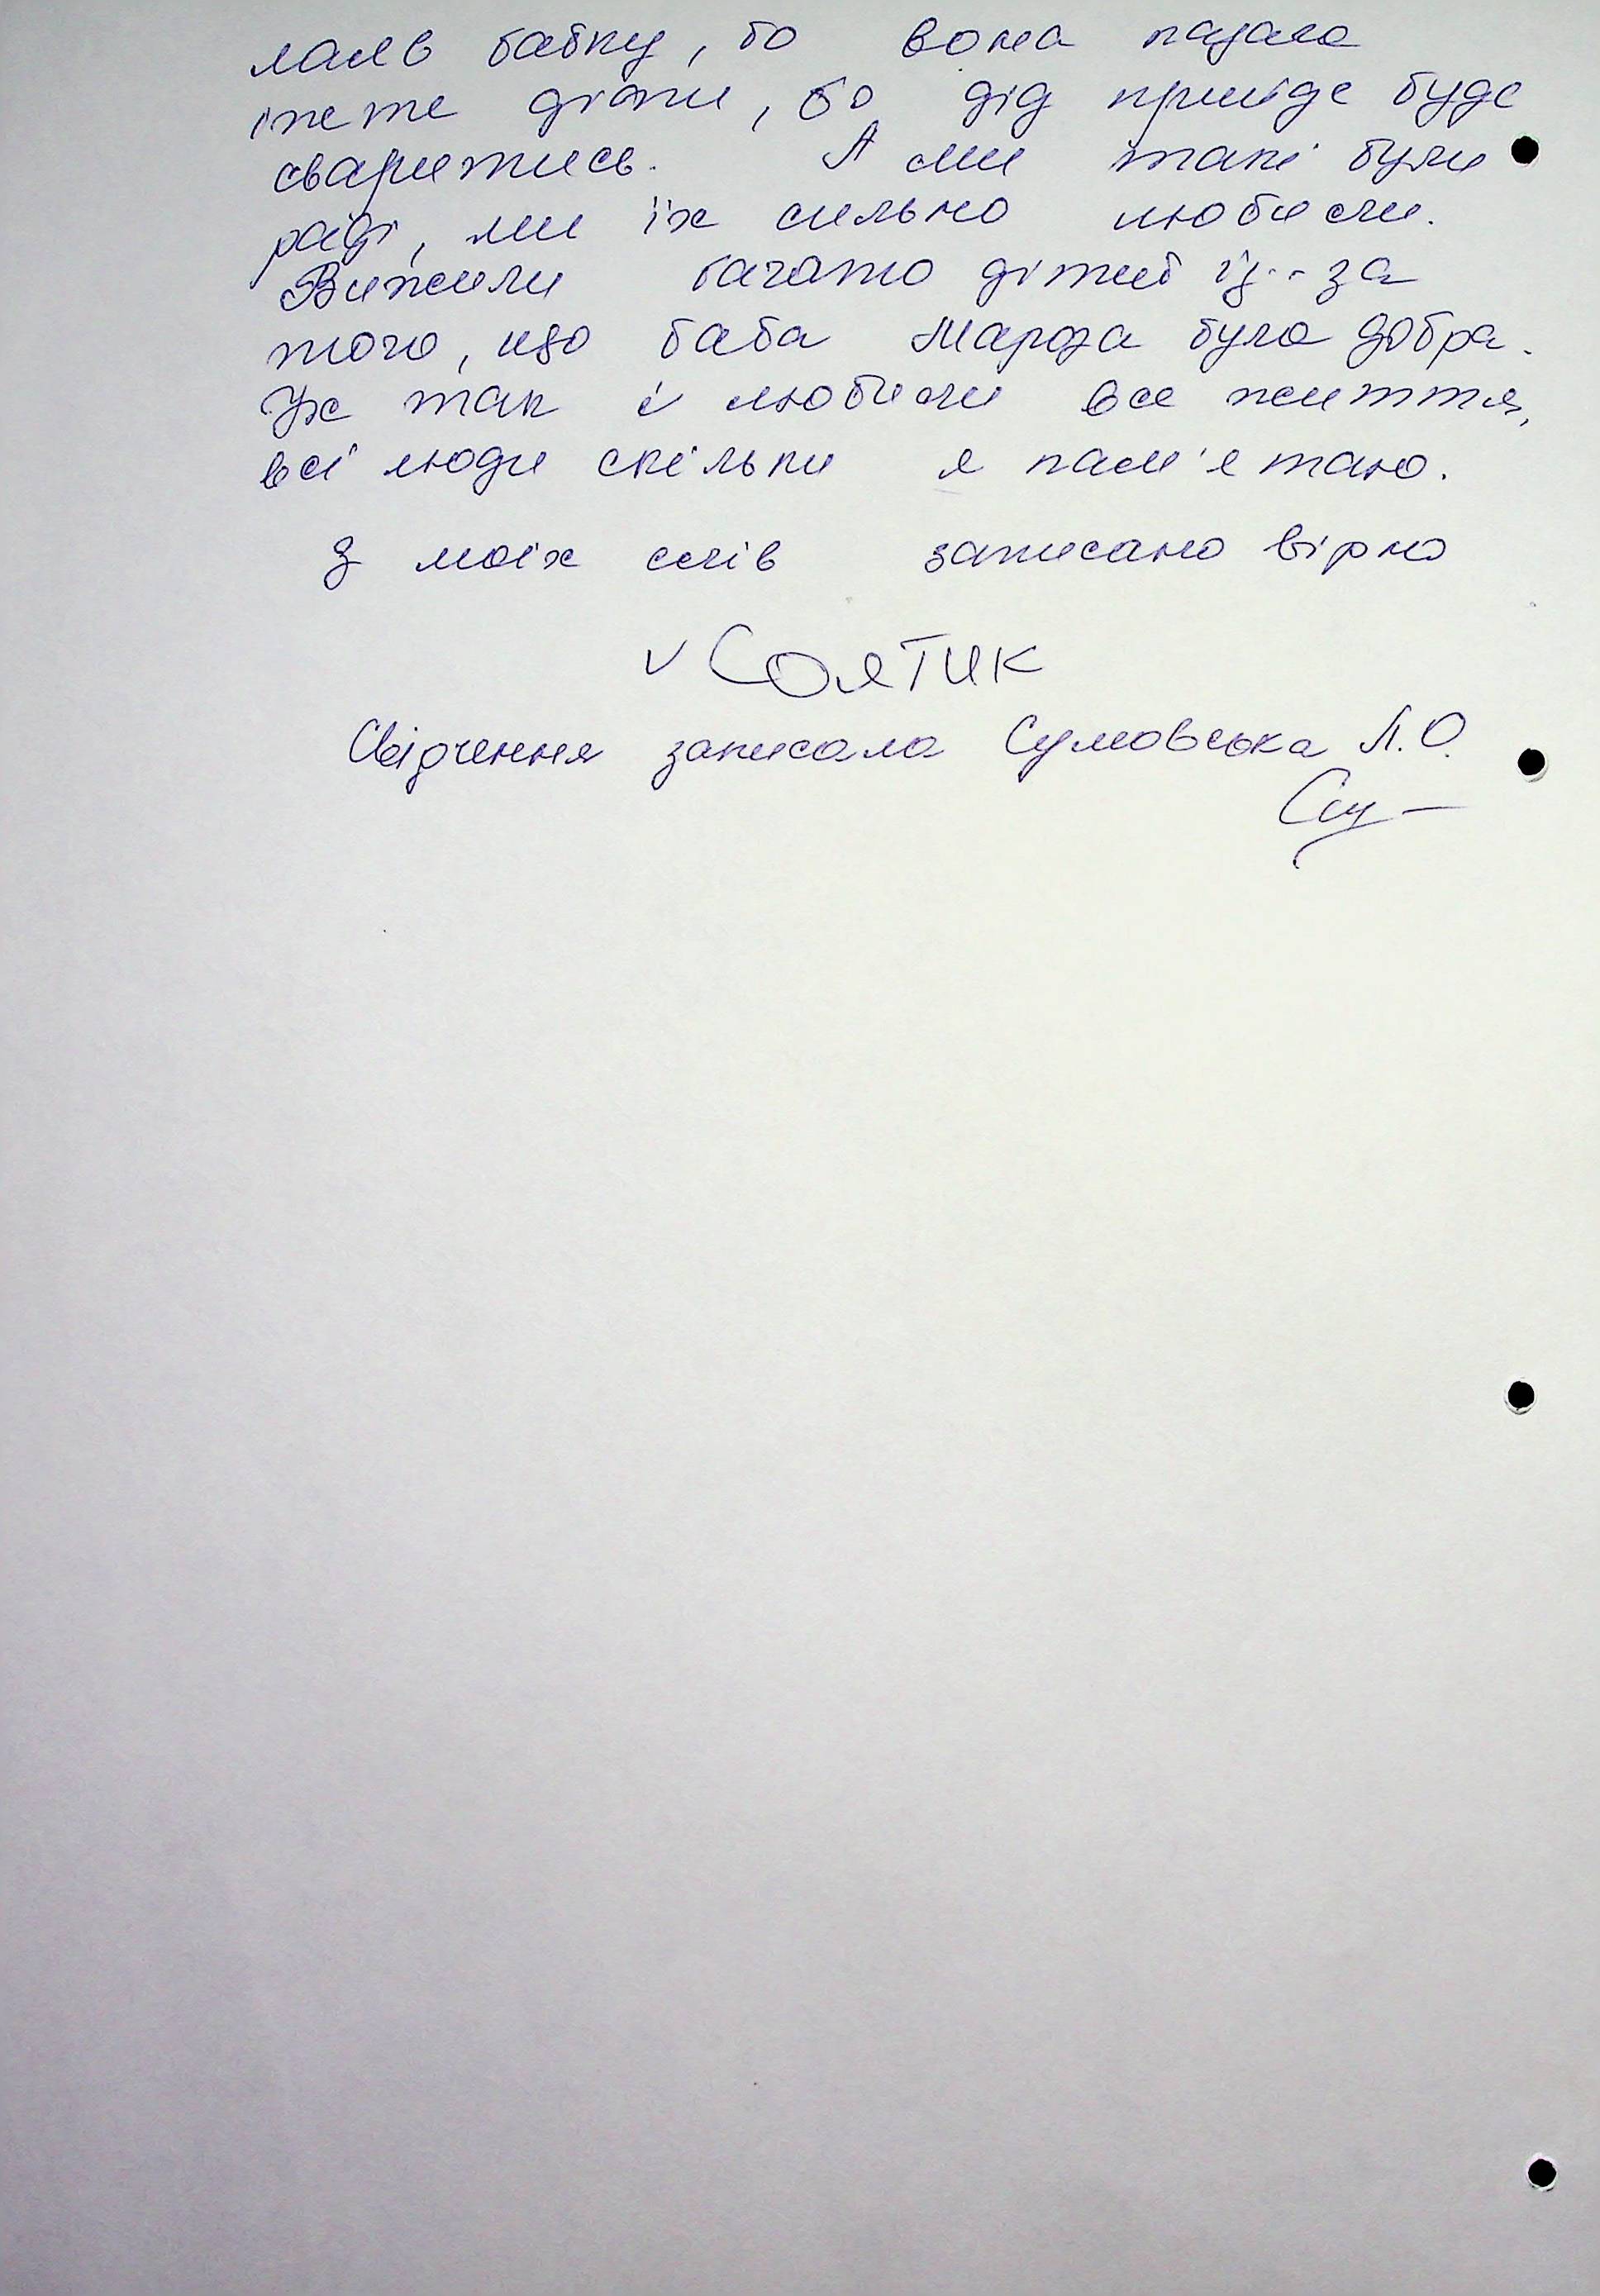 лаяв бабку, бо вона казала
їжте діти, бо дід приїде буде
сваритись. А ми такі були
раді, ми їх сильно любили.
Вижили багато дітей із-за
того, що баба Марфа була добра.
Їх так і любили все життя,
всі люди скільки я пам'ятаю.
З моїх слів записано вірно
Солтик
Свідчення записала Сумовська Л.О.